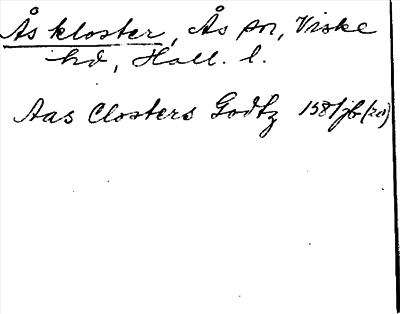 Ås kloster, Ås sn, Viske
hd, Hall. l.
Aas Closters Godtz 1581 jb (rd)